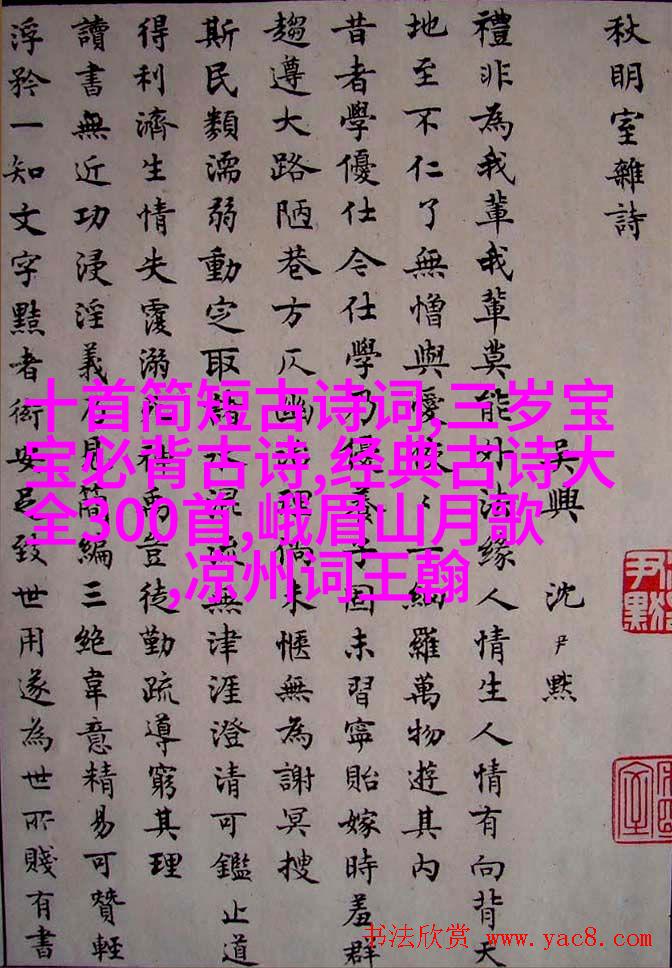 秋明室雜詩
吳興 沈尹默
禮非為我輩我輩莫能外法緣人情生人情有向背天
地至不仁了無憎與憂恢〻一網羅萬物遊其內
昔者學優仕今仕學乃優養子固未習寧貽嫁時羞群
趨遵大路陋巷方仄幽倘未愜無為謝冥搜
斯民類濡弱動定取諸水混流無津涯澄清可鑑止道
得利濟生情失覆溺禹豈徒勤疏導窮其理
讀書無近功浸淫義乃見簡編三絕韋意精易可贊輕
浮矜一知文字黠者衒致世用遂為世所賤有書
十首简短古诗词,三岁宝
宝必背古诗,经典古诗大
全300首,峨眉山月歌
,凉州词王翰
书法欣赏 www.yac8.com